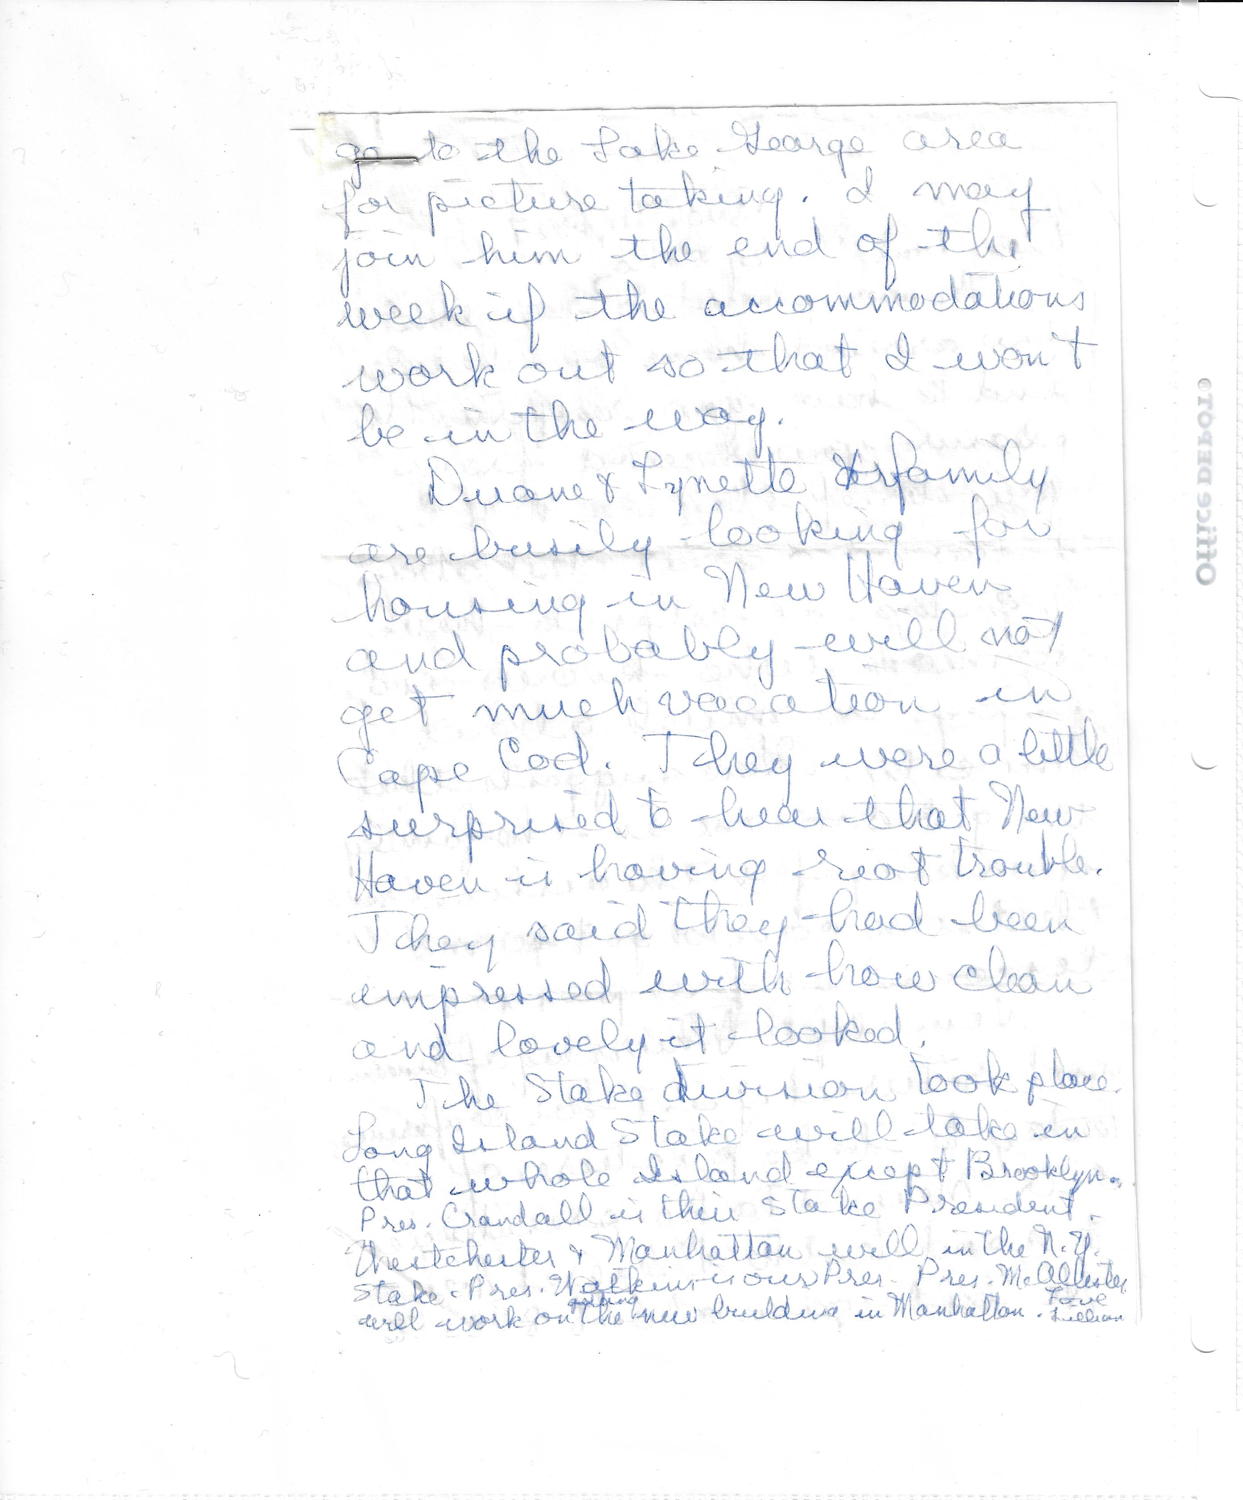 go to the Lake George area
for picture taking. I may
join him the end of the
week if the accommodations
work out so that I won't
be in the way.
Duane & Lynette & family
are busily looking for
housing in New Haven
and probably will not
get much vacation in
Cape Cod. They were a little
surprised to hear that New
Haven is having riot trouble.
They said they had been
impressed with how clean
and lovely it looked.
The Stake division took place.
Long Island Stake will take in
that whole Island except Brooklyn.
Pres. Crandall is their Stake President.
Westchester & Manhattan will in the N.Y.
Stake. Pres. Watkins is our Pres. Pres. McAllister
will work on the new building in Manhattan. Love
Lillian
Office DEPOT